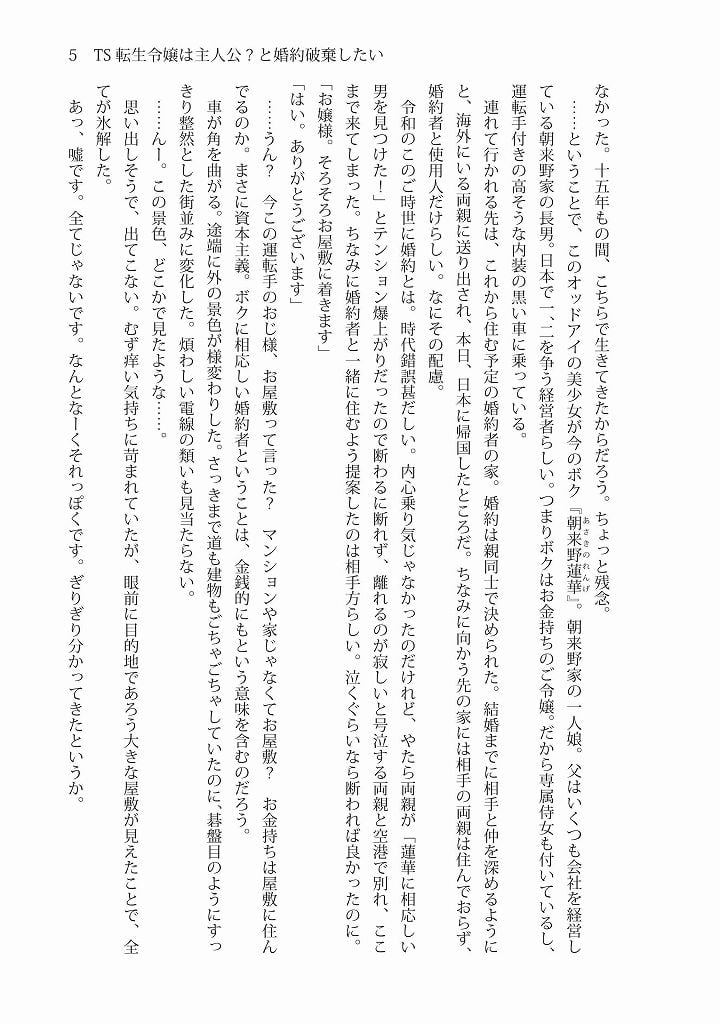 5　TS転生令嬢は主人公？と婚約破棄したい
なかった。十五年もの間、こちらで生きてきたからだろう。ちょっと残念。
　……ということで、このオッドアイの美少女が今のボク『朝来野蓮華』。朝来野家の一人娘。父はいくつも会社を経営し
あさきのれんげ
ている朝来野家の長男。日本で一、二を争う経営者らしい。つまりボクはお金持ちのご令嬢。だから専属侍女も付いているし、
運転手付きの高そうな内装の黒い車に乗っている。
　連れて行かれる先は、これから住む予定の婚約者の家。婚約は親同士で決められた。結婚までに相手と仲を深めるように
と、海外にいる両親に送り出され、本日、日本に帰国したところだ。ちなみに向かう先の家には相手の両親は住んでおらず、
婚約者と使用人だけらしい。なにその配慮。
　令和のこのご時世に婚約とは。時代錯誤甚だしい。内心乗り気じゃなかったのだけれど、やたら両親が「蓮華に相応しい
男を見つけた！」とテンション爆上がりだったので断わるに断れず、離れるのが寂しいと号泣する両親と空港で別れ、ここ
まで来てしまった。ちなみに婚約者と一緒に住むよう提案したのは相手方らしい。泣くぐらいなら断われば良かったのに。
「お嬢様。そろそろお屋敷に着きます」
「はい。ありがとうございます」
　……うん？　今この運転手のおじ様、お屋敷って言った？　マンションや家じゃなくてお屋敷？　お金持ちは屋敷に住ん
でるのか。まさに資本主義。ボクに相応しい婚約者ということは、金銭的にもという意味を含むのだろう。
　車が角を曲がる。途端に外の景色が様変わりした。さっきまで道も建物もごちゃごちゃしていたのに、碁盤目のようにすっ
きり整然とした街並みに変化した。煩わしい電線の類いも見当たらない。
　……んー。この景色、どこかで見たような……。
　思い出しそうで、出てこない。むず痒い気持ちに苛まれていたが、眼前に目的地であろう大きな屋敷が見えたことで、全
てが氷解した。
　あっ、嘘です。全てじゃないです。なんとなーくそれっぽくです。ぎりぎり分かってきたというか。